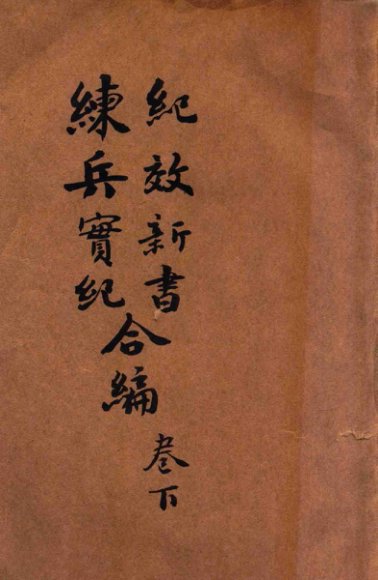 紀效新書
練兵實紀
合編
卷下